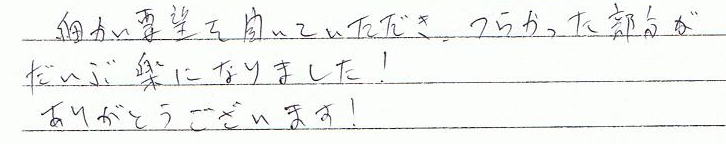 細かい要望を聞いていただき、つらかった部分が
だいぶ楽になりました！
ありがとうございます！